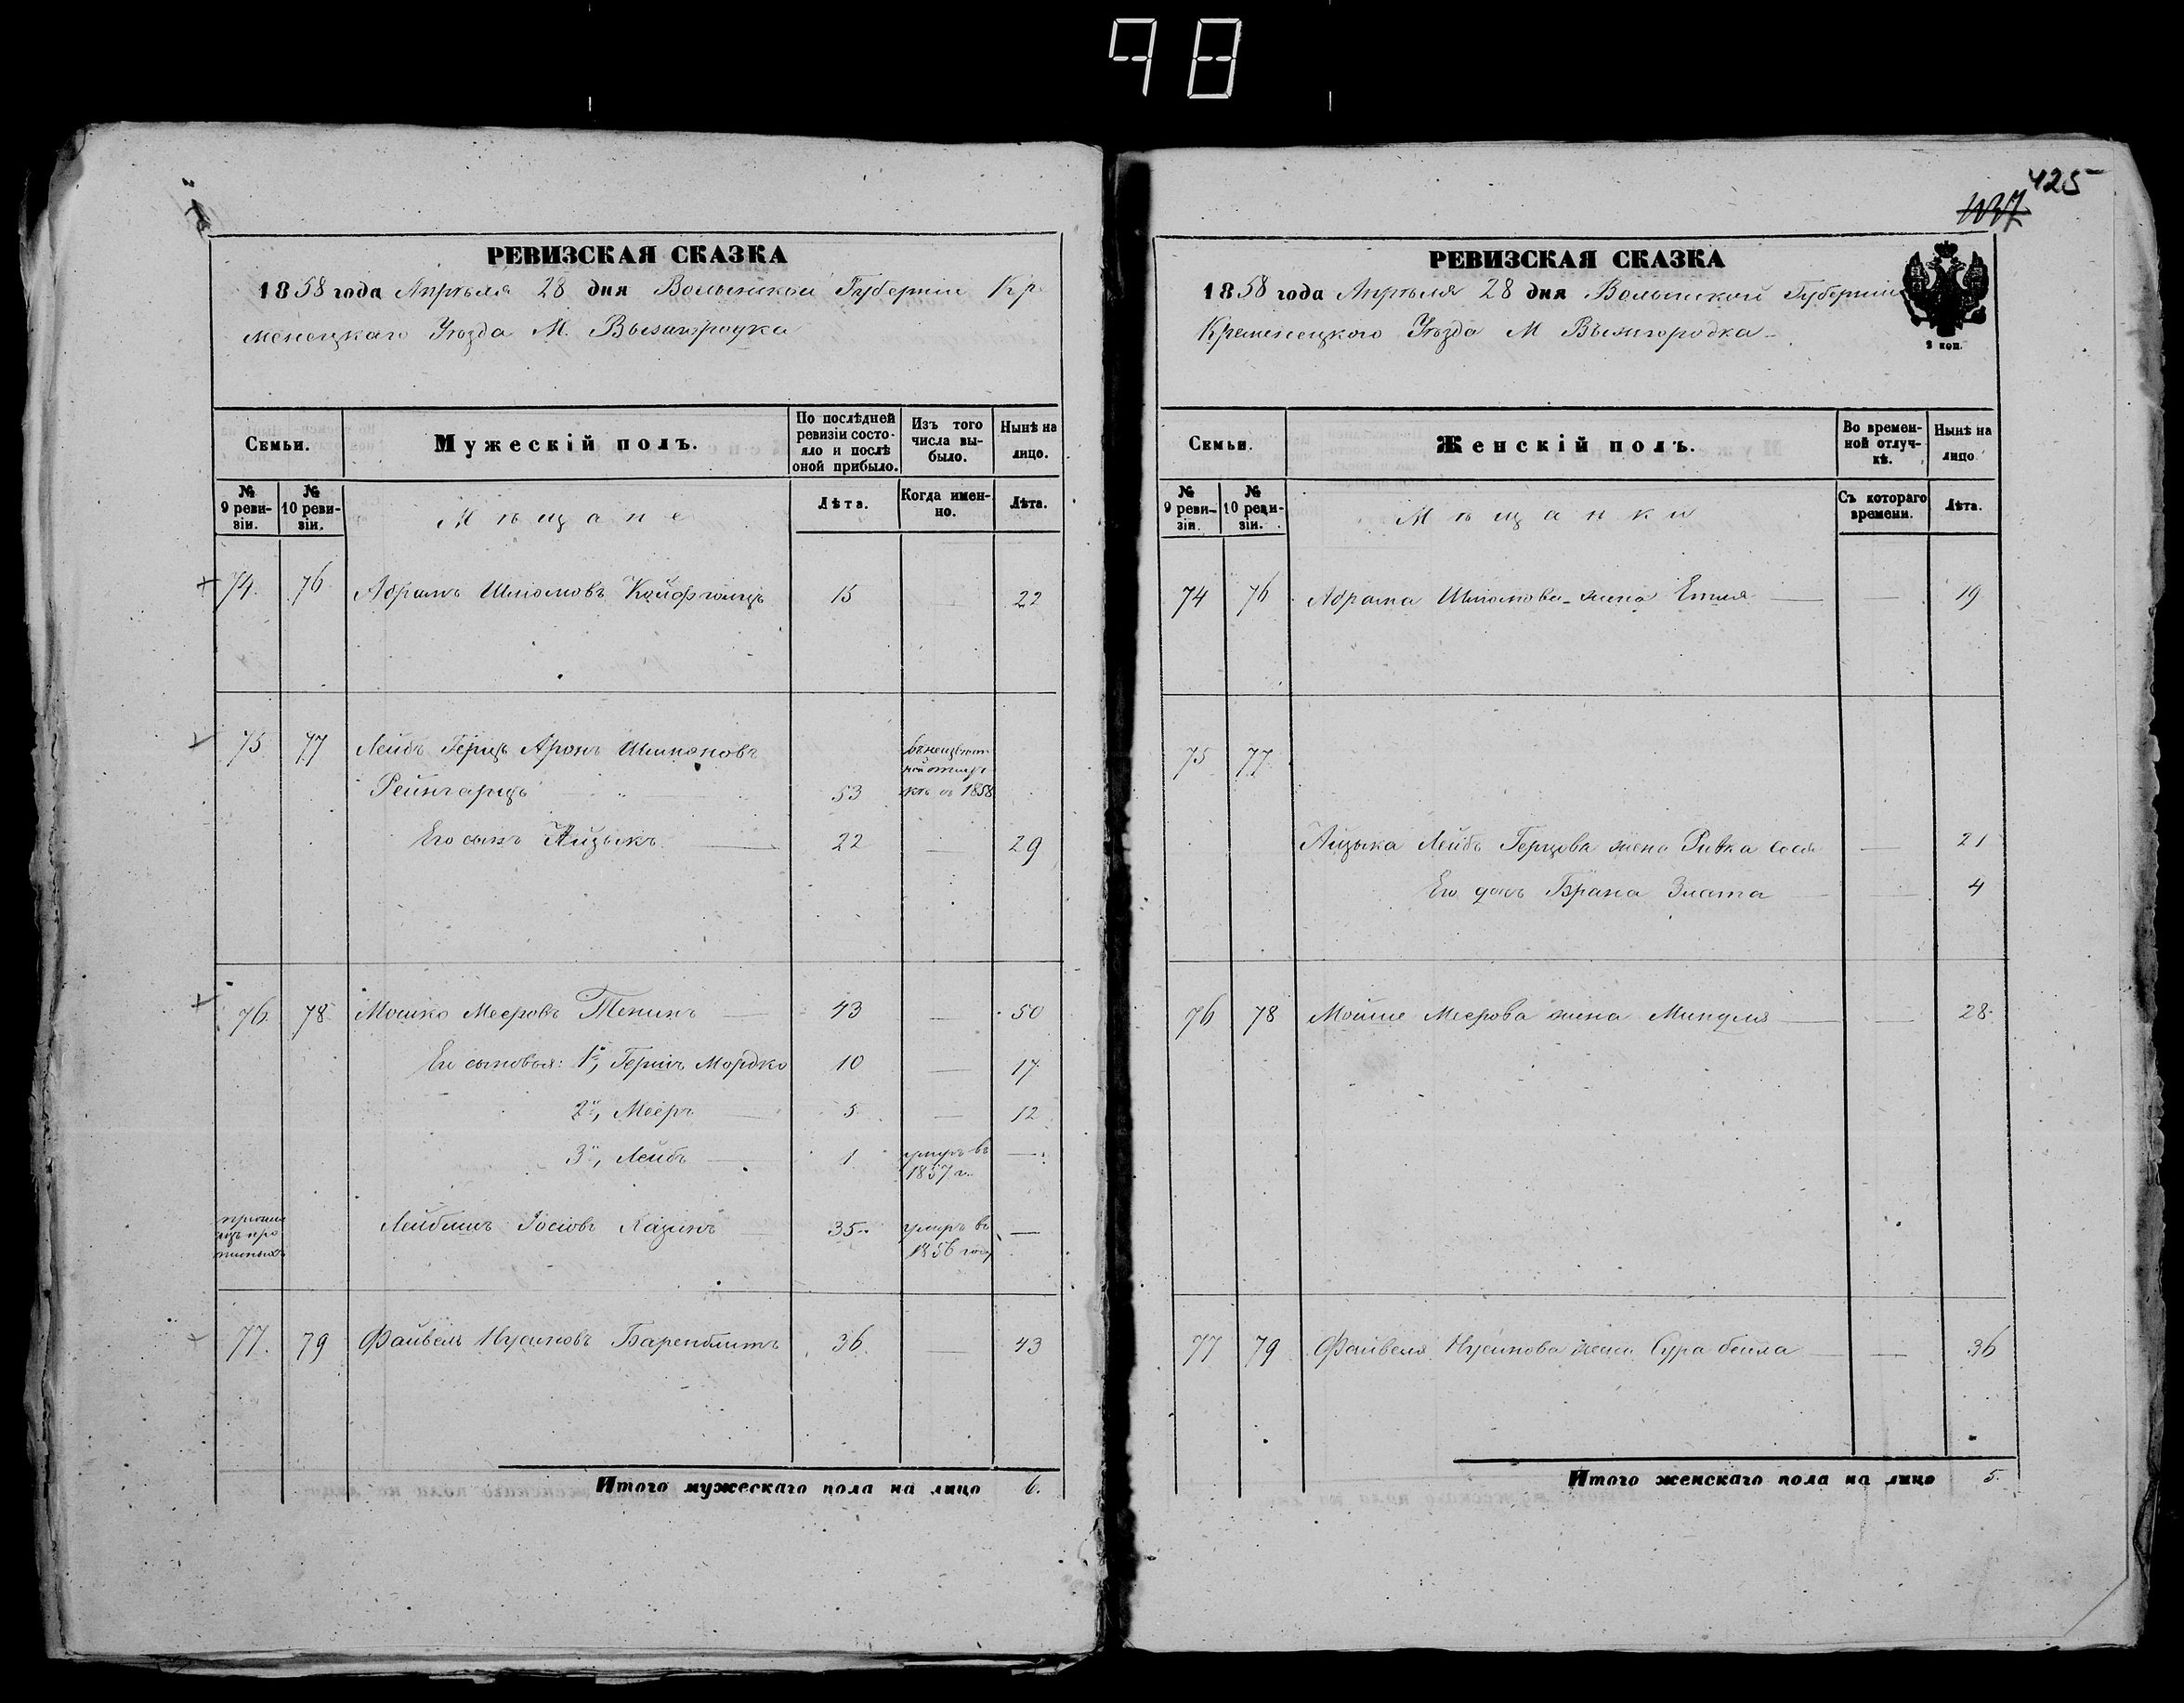 98
425
1137
РЕВИЗСКАЯ СКАЗКА
1858 года Апрѣля 28 дня Волынской Губерніи Кре-
менецкаго Уѣзда М. Вышгородка
Семьи.
Мужескій полъ.
По послѣдней ревизіи состояло и послѣ оной прибыло.
Изъ того числа выбыло.
Нынѣ на лицо.
№ 9 ревизіи.
№ 10 ревизіи.
Мѣщане
Лѣта.
Когда именно.
Лѣта.
74. 76 Абрамъ Шліомовъ 15 — 22
75 77 Лейбъ Герцъ Аронъ Шлиомовъ
Рейнгарцъ 53 отлучкѣ съ 1858
Его сынъ Айзыкъ 22 — 29
76 78 Мошко Мееровъ Тенинъ 43 — 50
Его сыновья: 1й, Гершъ Мордко 10 — 17
2й, Мееръ 5 — 12
3й, Лейбъ 1 умеръ въ —
1857 г.
Лейбишъ Іосіовъ Лазинъ 35 умеръ въ —
1856 году
77. 79 Файвель Нусиновъ Баренблитъ 36 — 43
Итого мужескаго пола на лицо 6.
РЕВИЗСКАЯ СКАЗКА
1858 года Апрѣля 28 дня Волынской Губерніи
Кременецкаго Уѣзда М Вышгородка
2 коп.
Семьи.
Женскій полъ.
Во временной отлучкѣ.
Нынѣ на лицо
№ 9 ревизіи.
№ 10 ревизіи.
Мѣщанки
Съ котораго времени.
Лѣта.
74 76 Абрама Шліомова жена Етля — 19
75 77
Айзыка Лейбъ Герцова жена Ривка Сося — 21
Его дочь Брана Злата — 4
76 78 Мошке Меерова жена Миндля — 28
77 79 Файвеля Нусинова жена Сура бейла — 36
Итого женскаго пола на лицо 5.